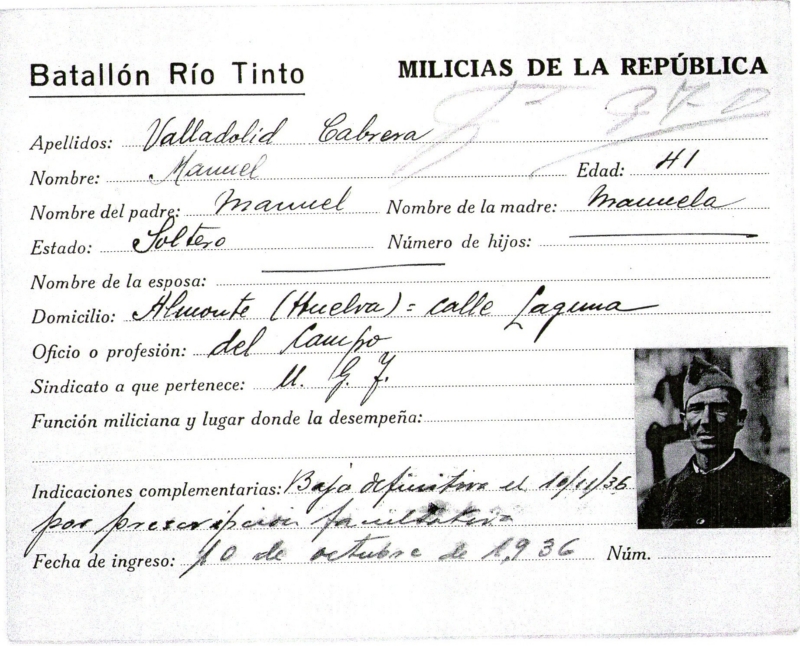 Batallón Río Tinto
MILICIAS DE LA REPÚBLICA
Apellidos: Valladolid Cabrera
Nombre: Manuel Edad: 41
Nombre del padre: Manuel Nombre de la madre: Manuela
Estado: Soltero Número de hijos:
Nombre de la esposa:
Domicilio: Almonte (Huelva) = calle Laguna
Oficio o profesión: del Campo
Sindicato a que pertenece: U. G. T.
Función miliciana y lugar donde la desempeña:
Indicaciones complementarias: Baja definitiva el 10/11/36
por prescripción facultativa
Fecha de ingreso: 10 de octubre de 1,936 Núm.